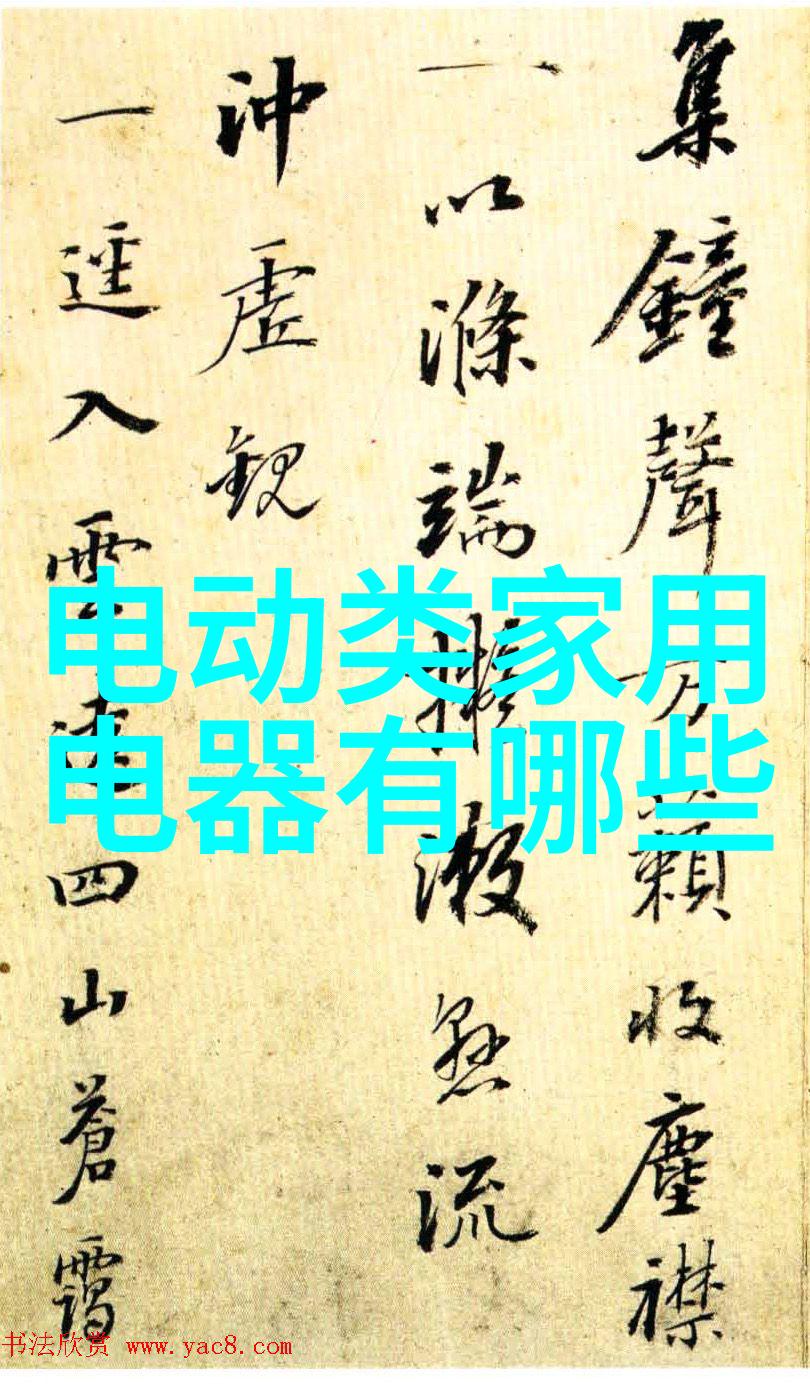 集鐘聲万籟收塵襟
一以滌端漱流
沖虛觀
一逕入雲四山蒼靄
电动类家用
电器有哪些
书法欣赏 www.yac8.com